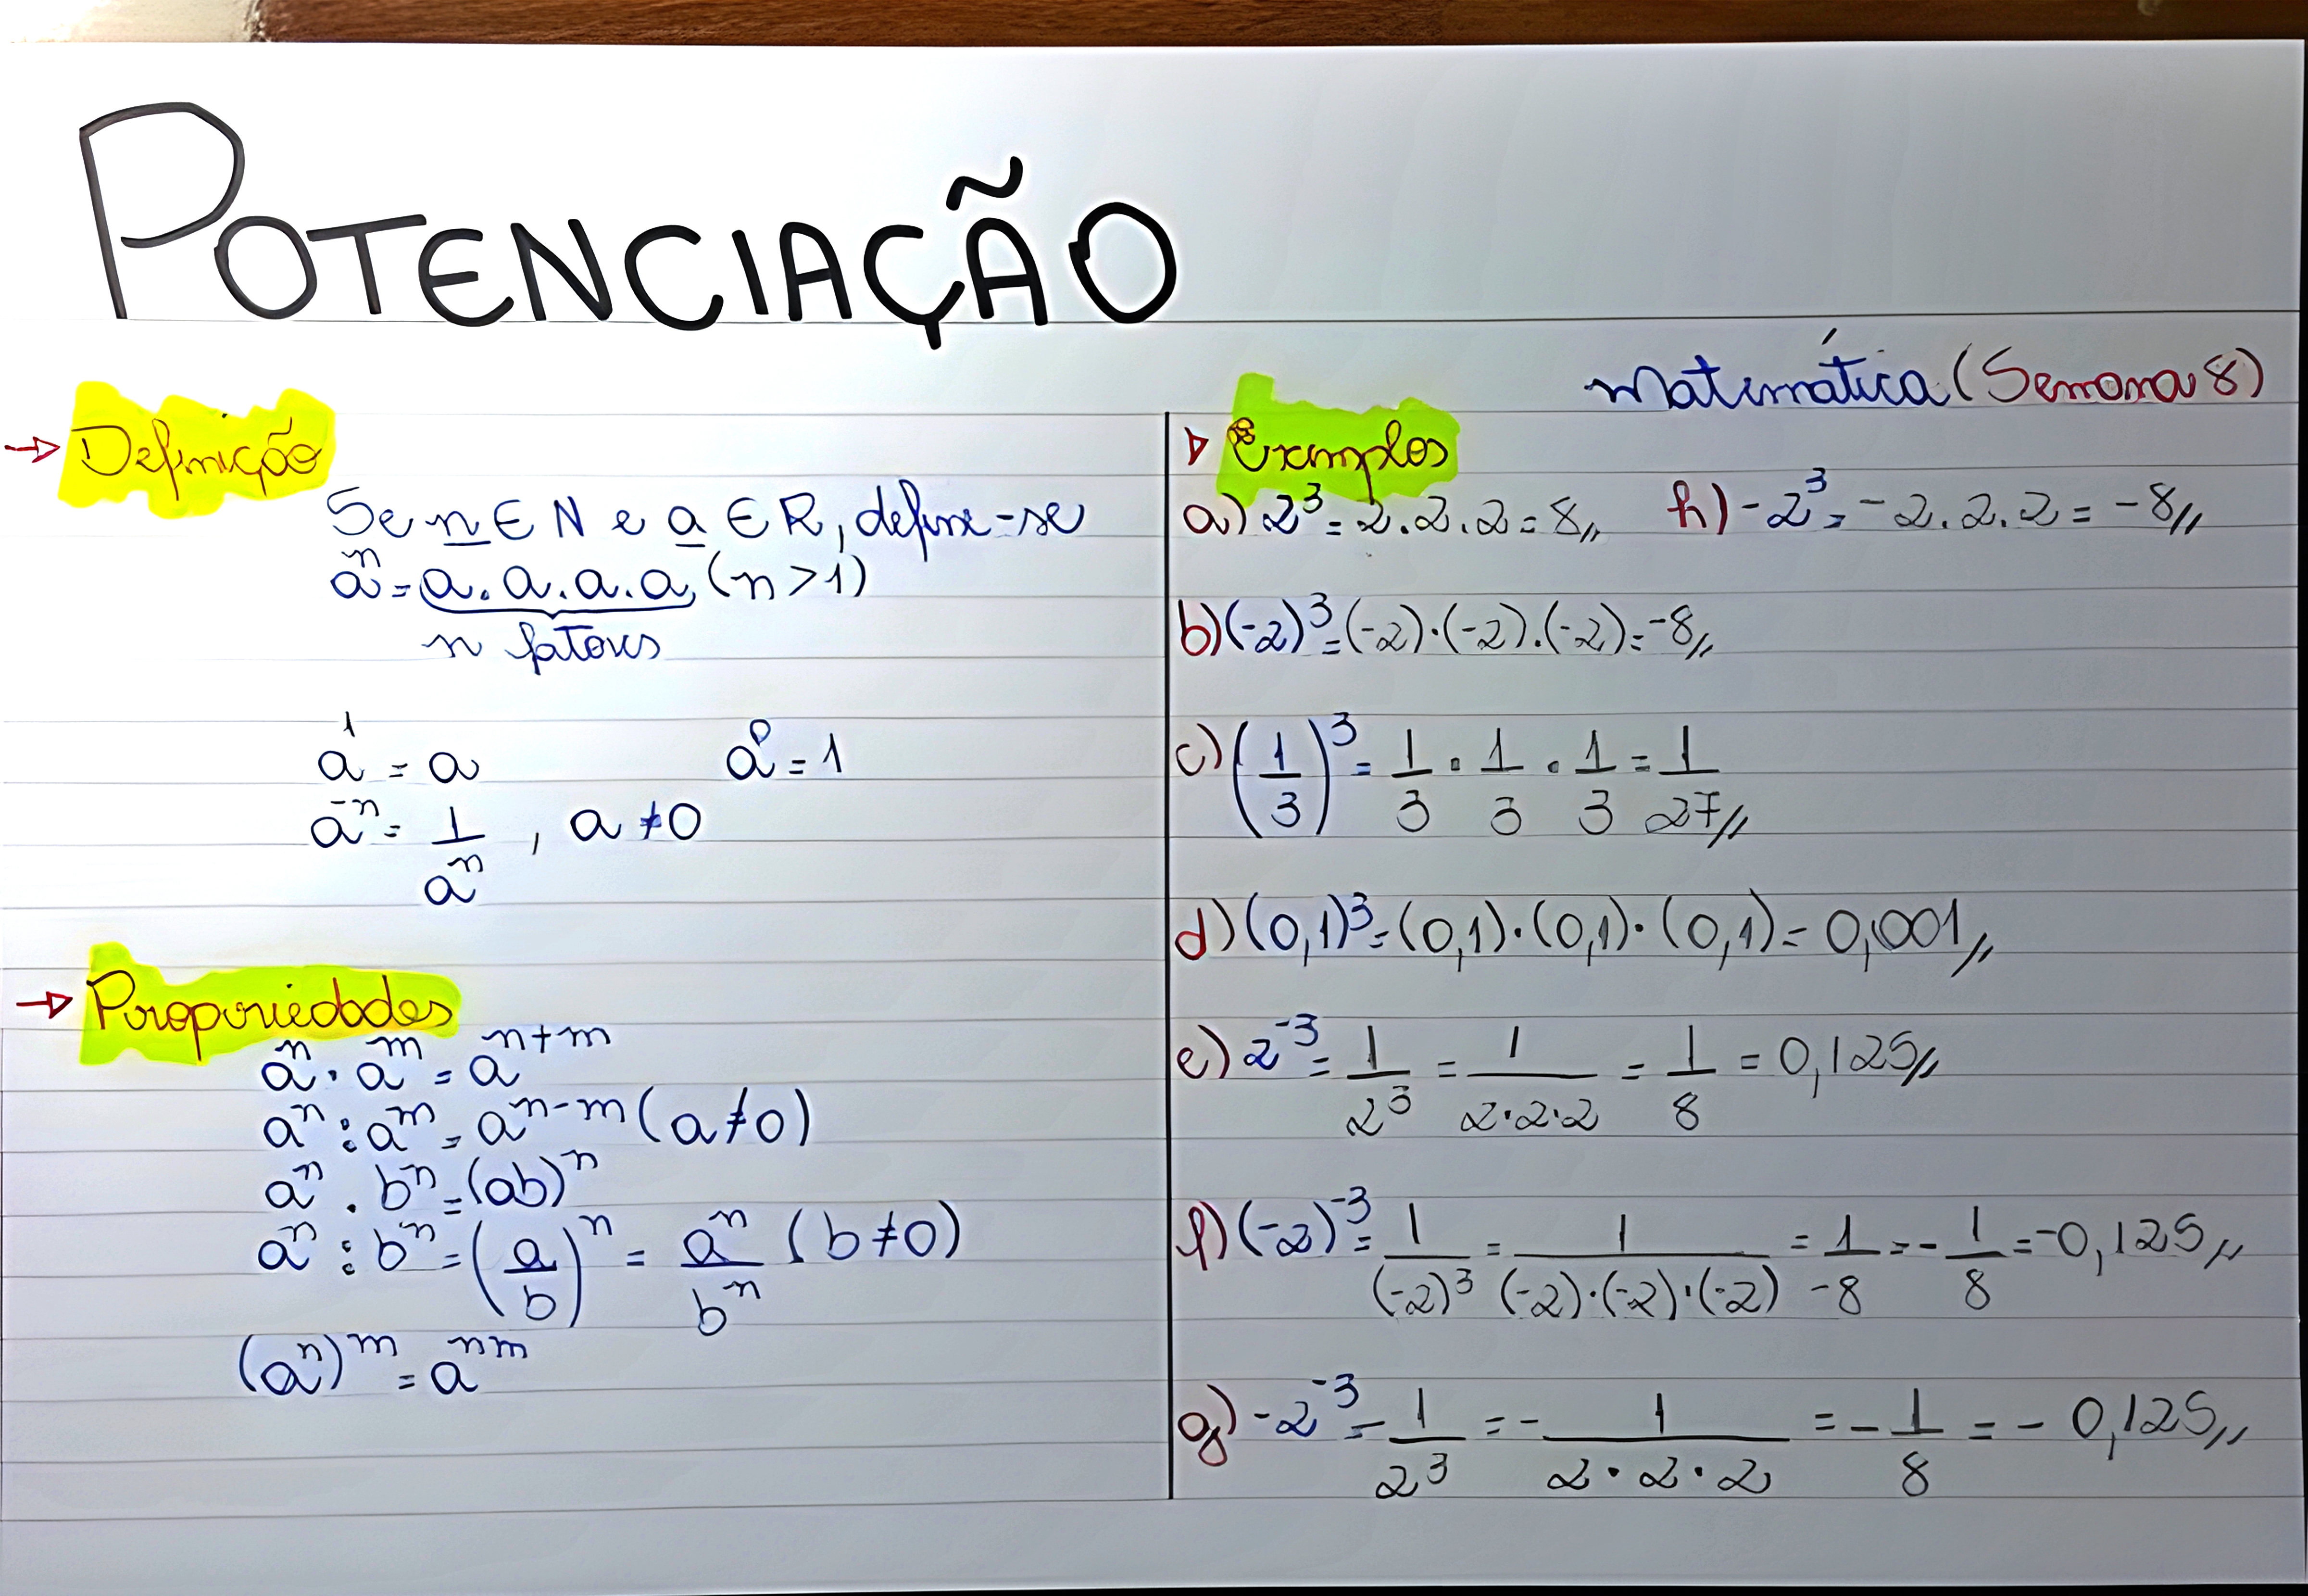 POTENCIAÇÃO
Matemática (Semana 8)
→ Definição
Se n ∈ N e a ∈ R, define-se
aⁿ = a . a . a . a (n > 1)
n fatores
a¹ = a a⁰ = 1
a⁻ⁿ = 1/aⁿ , a ≠ 0
→ Propriedades
aⁿ · aᵐ = aⁿ⁺ᵐ
aⁿ : aᵐ = aⁿ⁻ᵐ (a ≠ 0)
aⁿ . bⁿ = (ab)ⁿ
aⁿ : bⁿ = (a/b)ⁿ = aⁿ/bⁿ (b ≠ 0)
(aⁿ)ᵐ = aⁿᵐ
▷ Exemplos
a) 2³ = 2 . 2 . 2 = 8//
h) -2³ = -2 . 2 . 2 = -8//
b) (-2)³ = (-2) · (-2) . (-2) = -8//
c) (1/3)³ = 1/3 · 1/3 · 1/3 = 1/27//
d) (0,1)³ = (0,1) · (0,1) · (0,1) = 0,001//
e) 2⁻³ = 1/2³ = 1/2·2·2 = 1/8 = 0,125//
f) (-2)⁻³ = 1/(-2)³ = 1/(-2)·(-2)·(-2) = 1/-8 = -1/8 = -0,125//
g) -2⁻³ = -1/2³ = -1/2·2·2 = -1/8 = -0,125//